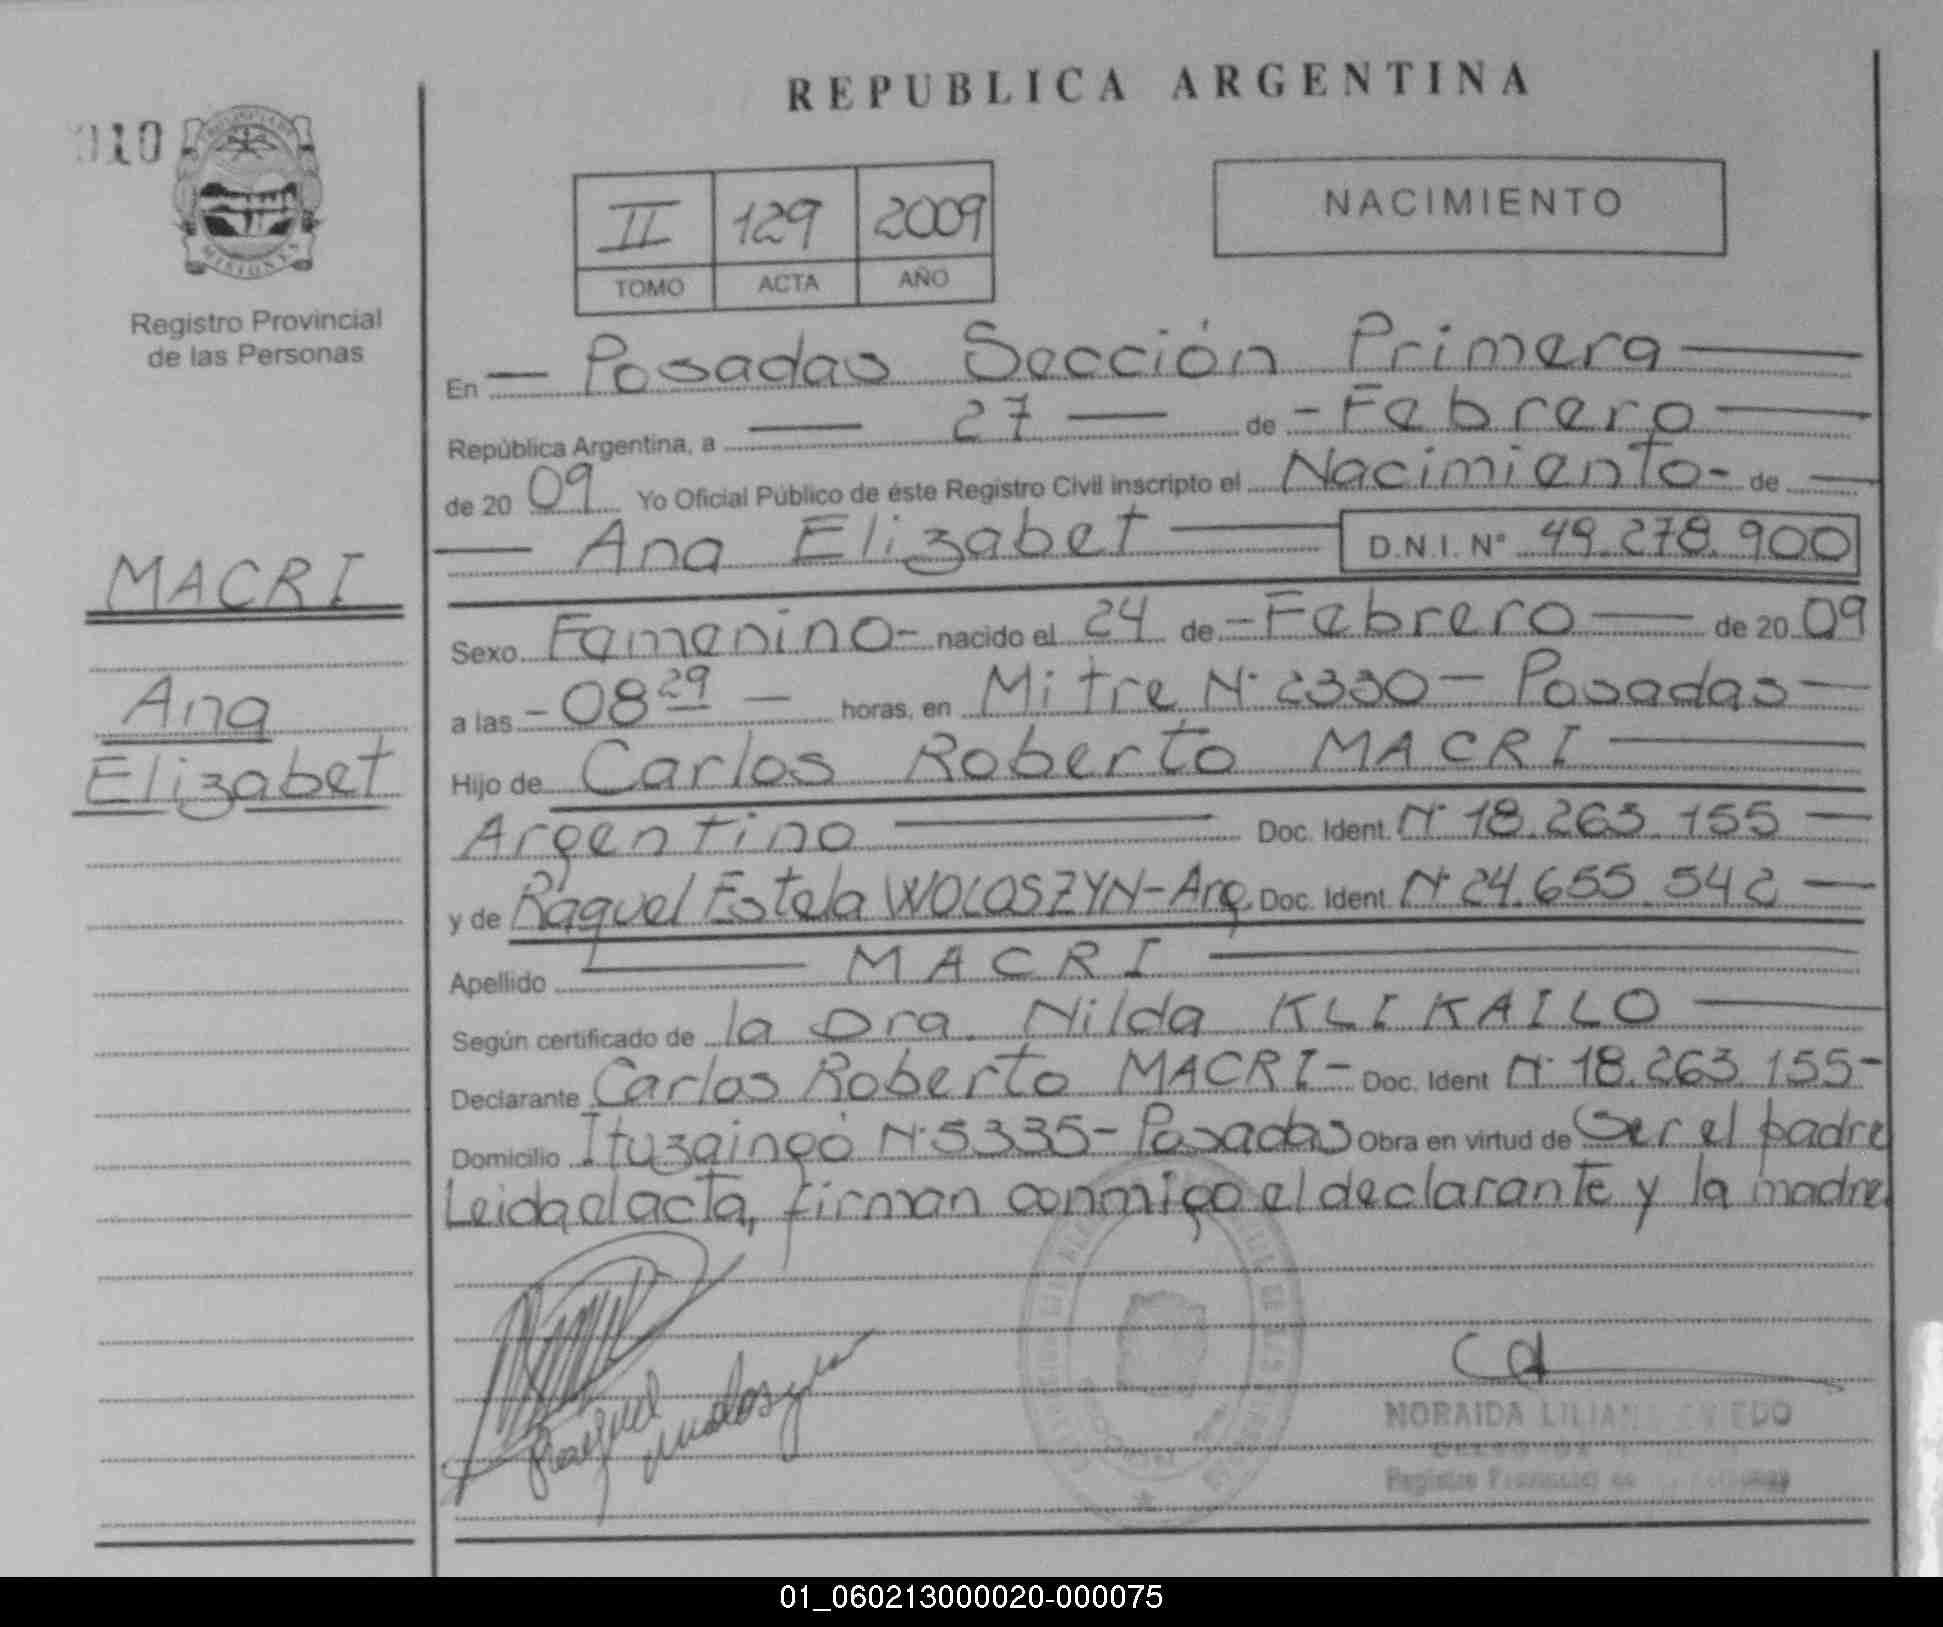 REPUBLICA ARGENTINA
010
MISIONES
Registro Provincial
de las Personas
II 129 2009
TOMO ACTA AÑO
NACIMIENTO
En Posadas Sección Primera
República Argentina, a 27 de Febrero
de 2009 Yo Oficial Público de éste Registro Civil inscripto el Nacimiento de
Ana Elizabet D.N.I. Nº 49.278.900
MACRI
Ana
Elizabet
Sexo Femenino nacido el 24 de Febrero de 2009
a las 08 29 horas, en Mitre Nº 2330 - Posadas
Hijo de Carlos Roberto MACRI
Argentino Doc. Ident. Nº 18.263.155
y de Raquel Estela WOLOSZYN - Arg. Doc. Ident. Nº 24.655.542
Apellido MACRI
Según certificado de la Dra. Nilda KLIKAILO
Declarante Carlos Roberto MACRI - Doc. Ident Nº 18.263.155-
Domicilio Ituzaingó Nº 5335 - Posadas Obra en virtud de Ser el padre
Leida el acta, firman conmigo el declarante y la madre
Raquel
NORAIDA
Registro Provincial de
01_060213000020-000075